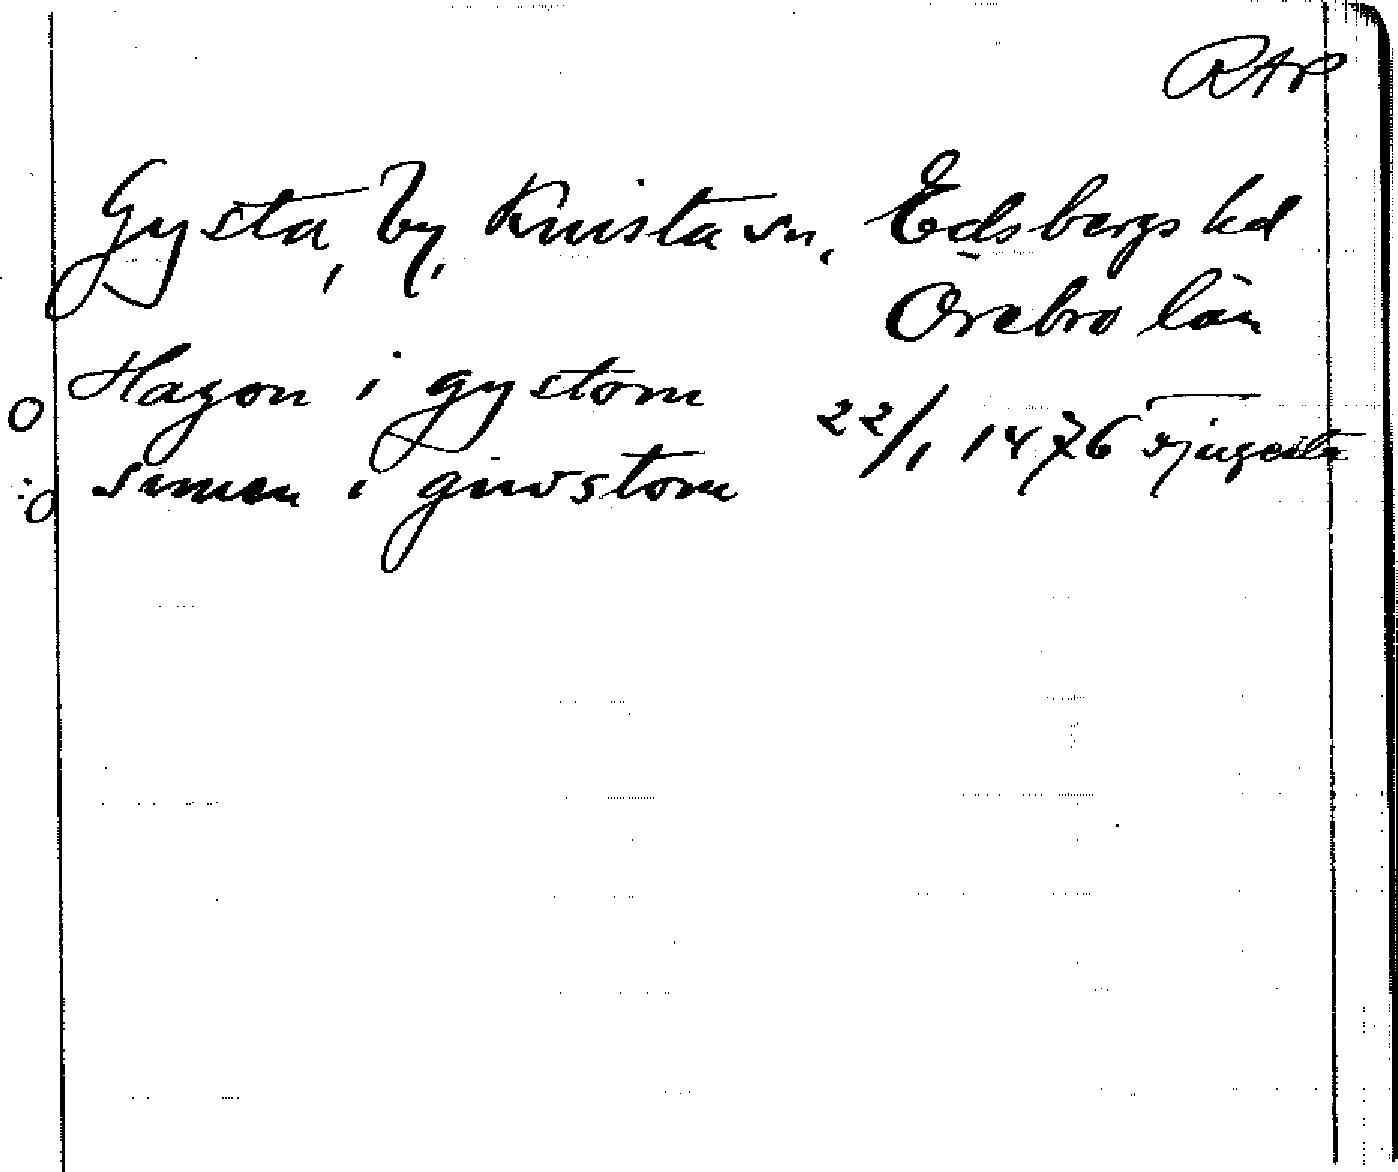 RAP
Gysta, by, Knista sn, Edsbergs hd
Örebro län
o Hagon i gystom 22/1 1476
:o simon i giwstom